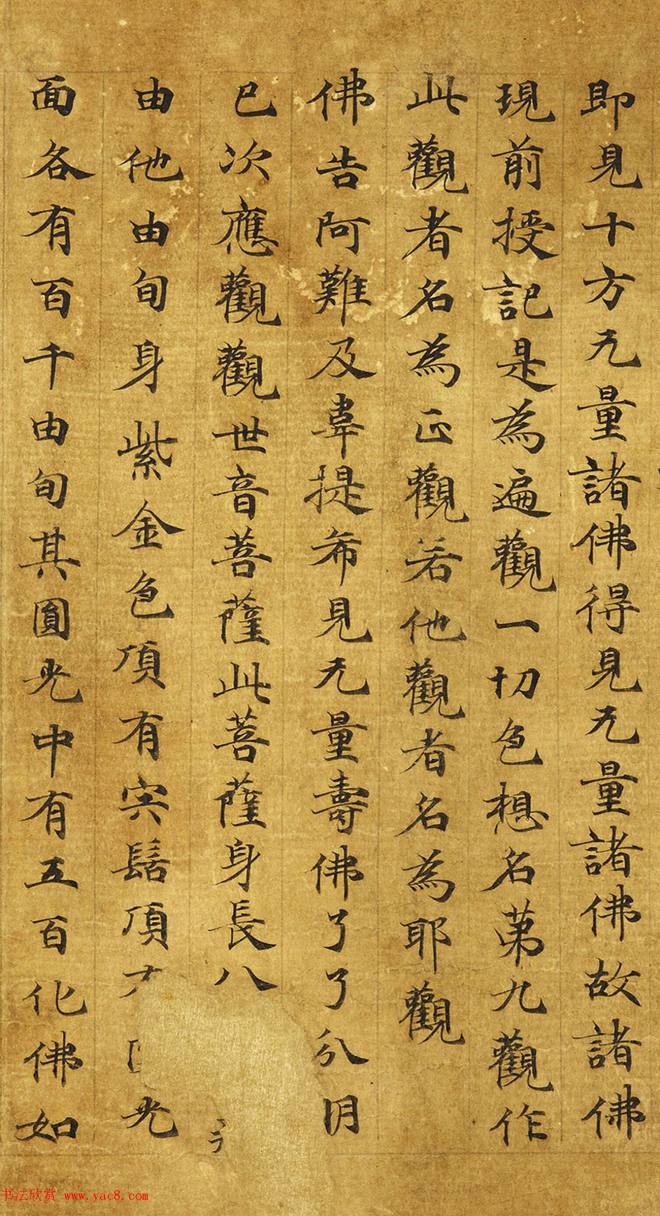 即見十方无量諸佛得見无量諸佛故諸佛
現前授記是為遍觀一切色想名苐九觀作
此觀者名為正觀若他觀者名為耶觀
佛告阿難及韋提希見无量壽佛了了分明
已次應觀觀世音菩薩此菩薩身長八
由他由旬身紫金色頂有宍髻頂光
面各有百千由旬其圎光中有五百化佛如
书法欣赏 www.yac8.com